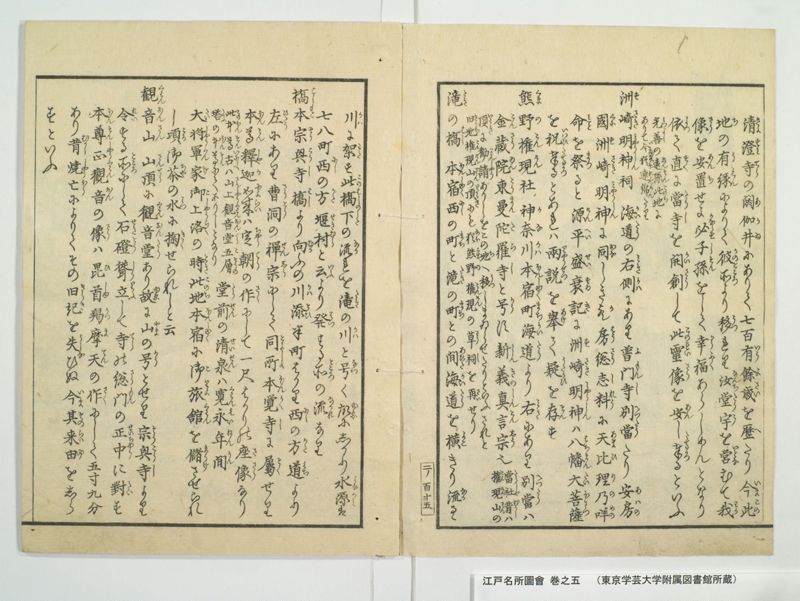 清澄寺の閼伽井にありて七百有餘歳を歴たり今此
地の有縁によりて彼所より移れり汝堂宇を営むて我
像を安置せよ必子孫をして幸福あらしめんとなり
依て直に當寺を開創して此霊像を安じ奉るといふ
洲崎明神祠 海道の右側にあり普門寺別當たり安房
國洲崎明神に同しされと房総志料に天比理乃咩
命を祭ると源平盛衰記に洲崎明神は八幡大菩薩
を祝奉るとあれは両説を挙て疑を存す
熊野権現社 神奈川本宿町海道より右にあり別當は
金蔵院東曼陀羅寺と号に新義真言宗也
當社昔は
権現山の
滝の橋 本宿西の町と滝の町との間海道を横きり流るる
二ノ百十五
川に架す此橋下の流を滝の川と号く
七八町西の方堰村と云より発する所の流なり
橋本宗興寺 橋より向ふの川添半町はかり西の方道より
左にあり曹洞の禅宗にて同所本覚寺に属せり
本尊釈迦如来は定朝の作にして一尺はかりの座像あり
堂前の清泉は寛永年間
大将軍家御上洛の時此地本宿に御旅館を儲させられ
し頃御茶の水に掬せられしと云
観音山 山頂に観音堂あり故に山の号とせり宗興寺より
令するにして石磴聳立して寺の総門の正中に對す
本尊正観音の像は毘首羯摩天の作にして五寸九分
あり昔焼亡によりてその旧記を失ひぬ今其来由をしら
すといふ
江戸名所圖會 巻之五 (東京学芸大学附属図書館所蔵)